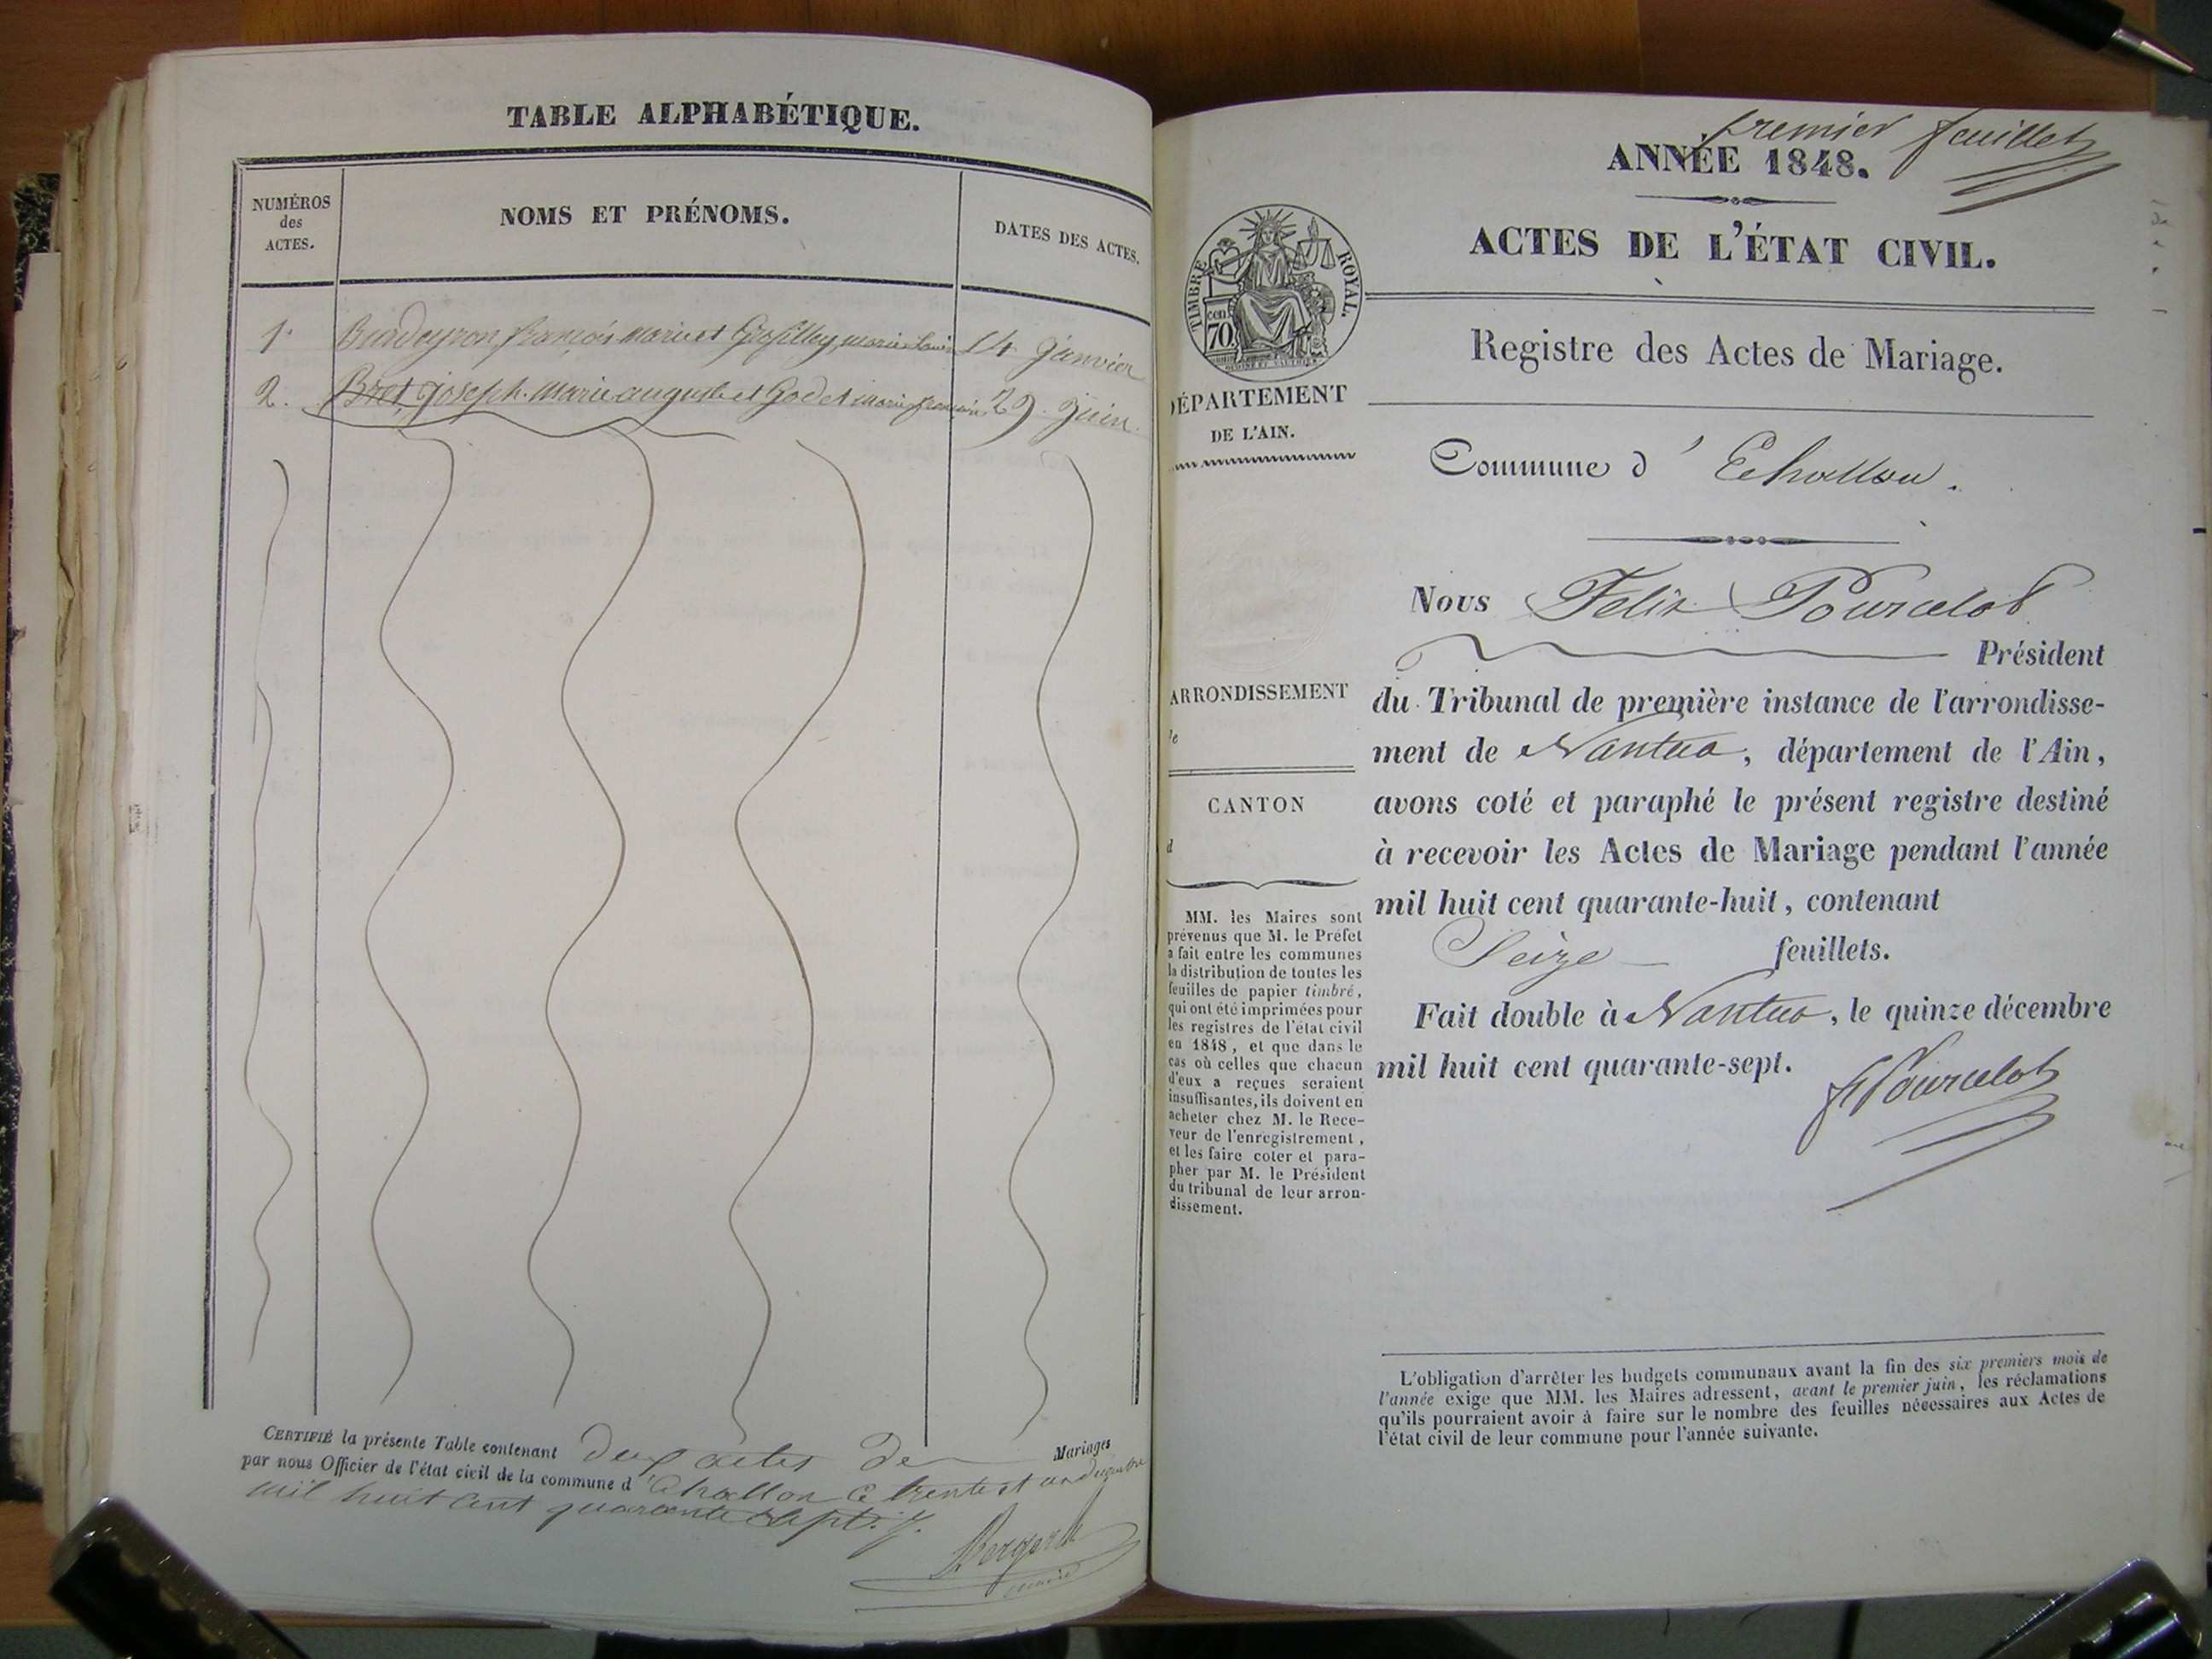 TABLE ALPHABÉTIQUE.
NUMÉROS
des
ACTES.
NOMS ET PRÉNOMS.
DATES DES ACTES.
1. françois marie et marie 14 janvier
2. Bret, joseph. Marie auguste et Godet marie 29 juin.
CERTIFIÉ la présente Table contenant deux actes de Mariages
par nous Officier de l'état civil de la commune d'Echallon ce trente et un décembre
mil huit cent quarante sept.
maire
premier feuillet
ANNÉE 1848.
ACTES DE L'ÉTAT CIVIL.
TIMBRE ROYAL.
cen.
70
DÉPARTEMENT
DE L'AIN.
Registre des Actes de Mariage.
Commune d'Echallon.
Nous Felix Pourcelot
Président
du Tribunal de première instance de l'arrondisse-
ment de Nantua, département de l'Ain,
avons coté et paraphé le présent registre destiné
à recevoir les Actes de Mariage pendant l'année
mil huit cent quarante-huit, contenant
Seize feuillets.
Fait double à Nantua, le quinze décembre
mil huit cent quarante-sept.
F Pourcelot
ARRONDISSEMENT
de
CANTON
d
MM. les Maires sont
prévenus que M. le Préfet
a fait entre les communes
la distribution de toutes les
feuilles de papier timbré,
qui ont été imprimées pour
les registres de l'état civil
en 1848, et que dans le
cas où celles que chacun
d'eux a reçues seraient
insuffisantes, ils doivent en
acheter chez M. le Rece-
veur de l'enregistrement,
et les faire coter et para-
pher par M. le Président
du tribunal de leur arron-
dissement.
L'obligation d'arrêter les budgets communaux avant la fin des six premiers mois de
l'année exige que MM. les Maires adressent, avant le premier juin, les réclamations
qu'ils pourraient avoir à faire sur le nombre des feuilles nécessaires aux Actes de
l'état civil de leur commune pour l'année suivante.